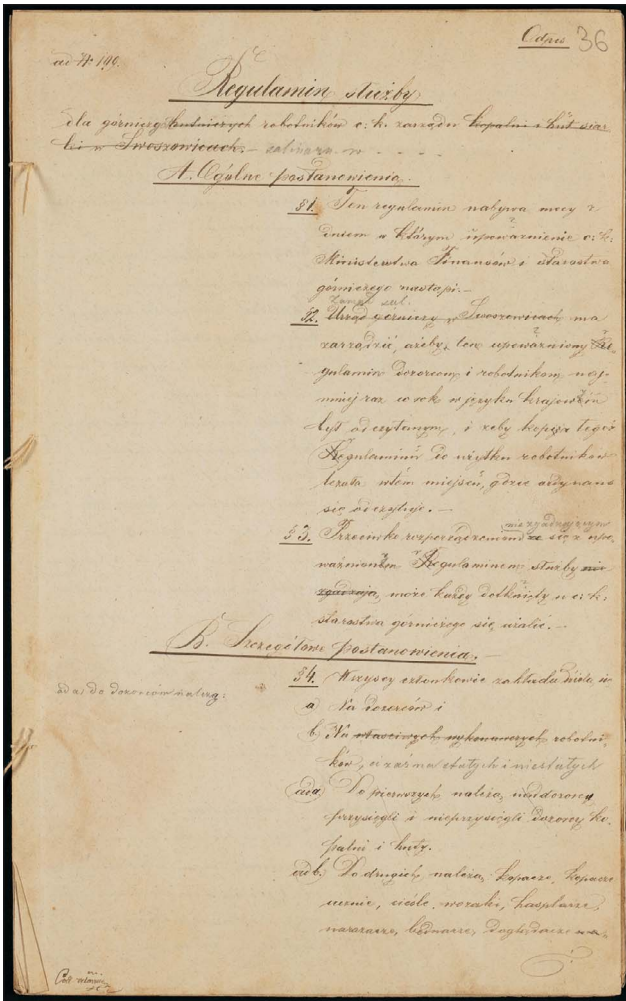 Odpis 36
ad N 190.
Regulamin służby
dla górniczych hutniczych robotników c. k. zarządu kopalni i hut siar-
ki w Swoszowicach. – salinarn
A. Ogólne postanowienia.
§1. Ten regulamin nabywa mocy z
dniem w którym upoważnienie c. k.
Ministerstwa Finansów i starostwa
górniczego nastąpi. –
Zarząd sal.
§2. Urząd górniczy w Swoszowicach ma
zarządzić, ażeby ten upoważniony Re-
gulamin dozorcom i robotnikom naj-
mniej raz co rok w języku krajowym
był odczytanym, i żeby kopija tegoż
Regulaminu do użytku robotników
leżała w tém miejscu, gdzie ordynans
się odczytuje. –
niezgadzającym
§3. Przeciwko rozporządzeniom ze się z upo-
ważnionem Regulaminem służby nie
zgadzają, może każdy dotknięty u c. k.
starostwa górniczego się użalić. –
B. Szczegółowe postanowienia. –
§4. Wszyscy członkowie zakładu dzielą się
ad a, do dozorców należą:
a) Na dozorców i
b) Na właściwych wykonawczych robotni-
ków, a zatém stałych i niestałych
ad a) Do pierwszych należą naddozorcy
przysięgli i nieprzysięgli dozorcy ko-
palni i huty.
ad b. Do drugich należą, kopacze, kopacze
ucznie, cieśle, wozaki, hasplarze,
bednarze, doglądacze